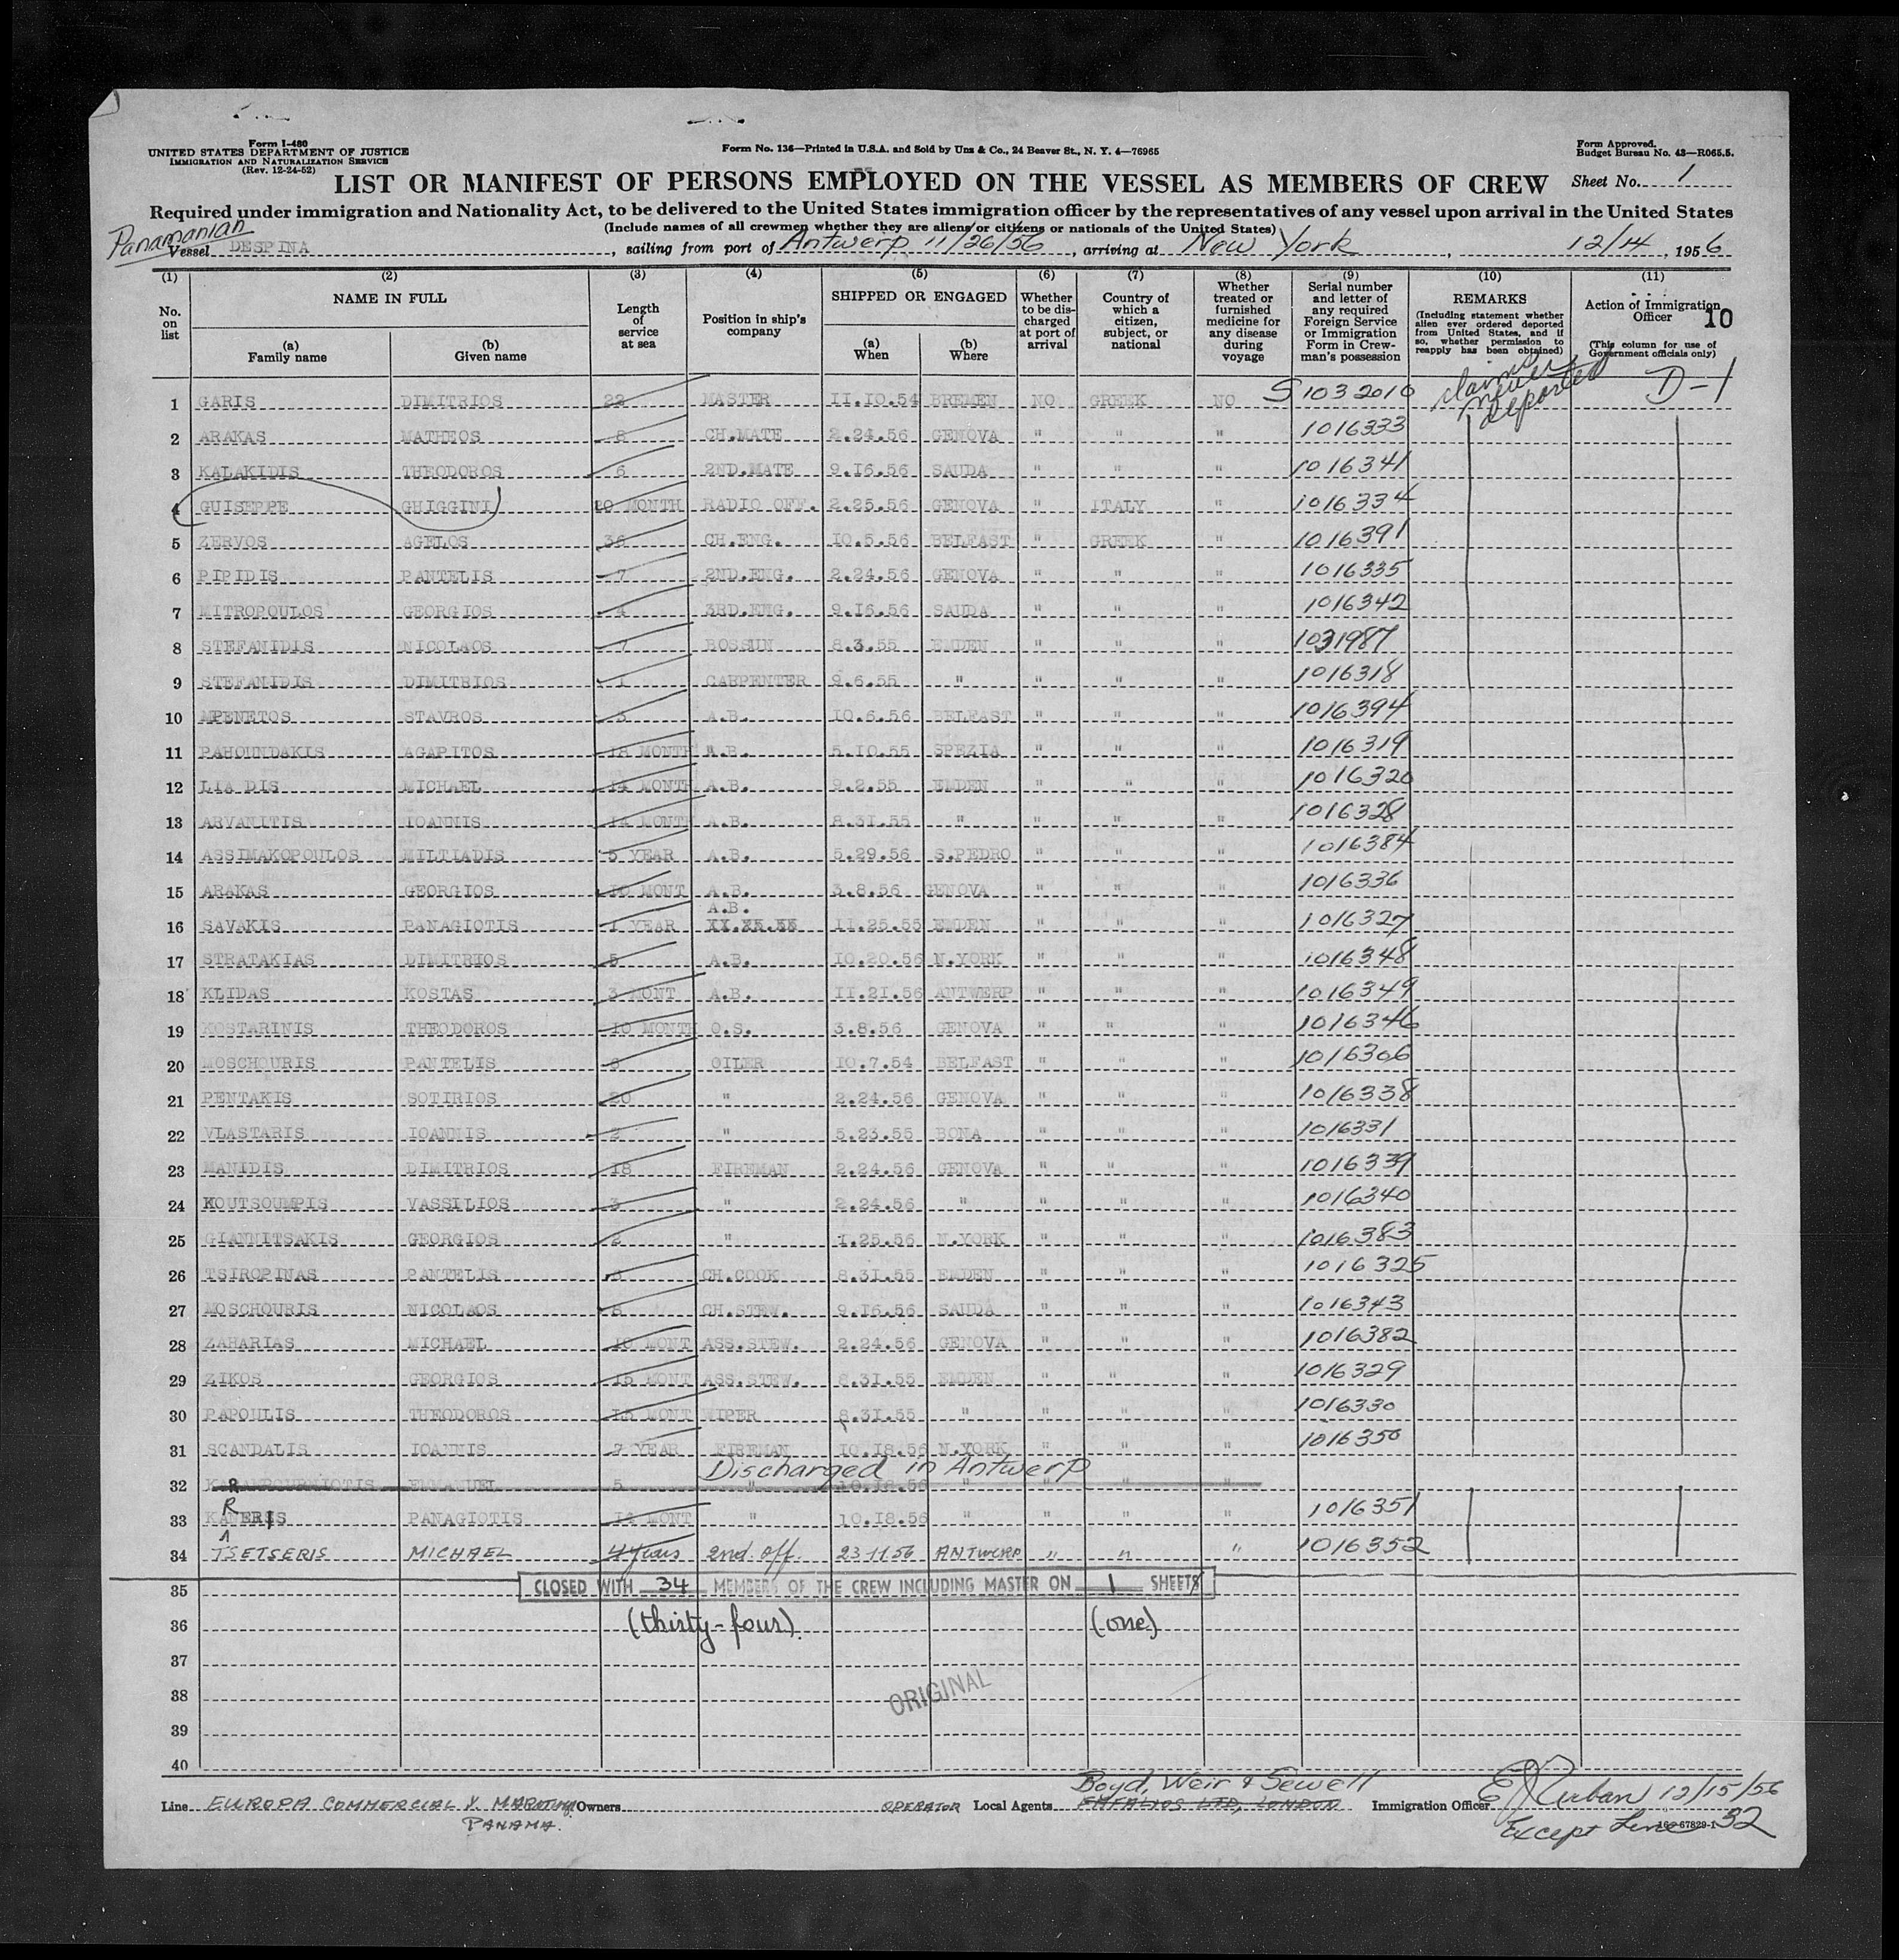 Form I-480
UNITED STATES DEPARTMENT OF JUSTICE
IMMIGRATION AND NATURALIZATION SERVICE
(Rev. 12-24-52)
Form No. 136—Printed in U.S.A. and Sold by Unz & Co., 24 Beaver St., N. Y. 4—76965
Form Approved.
Budget Bureau No. 43—R065.5.
LIST OR MANIFEST OF PERSONS EMPLOYED ON THE VESSEL AS MEMBERS OF CREW
Sheet No. 1
Required under immigration and Nationality Act, to be delivered to the United States immigration officer by the representatives of any vessel upon arrival in the United States
(Include names of all crewmen whether they are aliens or citizens or nationals of the United States)
Panamanian
Vessel DESPINA, sailing from port of Antwerp 11/26/56, arriving at New York, 12/14, 1956
(1) (2) (3) (4) (5) (6) (7) (8) (9) (10) (11)
No. on list
NAME IN FULL
(a) Family name
(b) Given name
Length of service at sea
Position in ship's company
SHIPPED OR ENGAGED
(a) When
(b) Where
Whether to be discharged at port of arrival
Country of which a citizen, subject, or national
Whether treated or furnished medicine for any disease during voyage
Serial number and letter of any required Foreign Service or Immigration Form in Crewman's possession
REMARKS
(Including statement whether alien ever ordered deported from United States, and if so, whether permission to reapply has been obtained)
Action of Immigration Officer
10
(This column for use of Government officials only)
1 GARIS DIMITRIOS 22 MASTER 11.10.54 BREMEN NO GREEK NO S 1032010 claims never deported D-1
2 ARAKAS MATHEOS 8 CH.MATE 2.24.56 GENOVA " " " 1016333
3 KALAKIDIS THEODOROS 6 2ND.MATE 9.16.56 SAUDA " " " 1016341
4 GUISEPPE GHIGGINI 20 MONTH RADIO OFF. 2.25.56 GENOVA " ITALY " 1016334
5 ZERVOS AGELOS 36 CH.ENG. 10.5.56 BELFAST " GREEK " 1016391
6 PIPIDIS PANTELIS 7 2ND.ENG. 2.24.56 GENOVA " " " 1016335
7 MITROPOULOS GEORGIOS 4 3RD.ENG. 9.16.56 SAUDA " " " 1016342
8 STEFANIDIS NICOLAOS 7 BOSSUN 8.3.55 EMDEN " " " 1031987
9 STEFANIDIS DIMITRIOS 1 CARPENTER 9.6.55 " " " " 1016318
10 MPENETOS STAVROS 3 A.B. 10.6.56 BELFAST " " " 1016394
11 PAHOUNDAKIS AGAPITOS 18 MONTH A.B. 5.10.55 SPEZIA " " " 1016319
12 LIA DIS MICHAEL 14 MONTH A.B. 9.2.55 EMDEN " " " 1016320
13 ARVANITIS IOANNIS 14 MONTH A.B. 8.31.55 " " " " 1016328
14 ASSIMAKOPOULOS MILTIADIS 5 YEAR A.B. 5.29.56 S.PEDRO " " " 1016384
15 ARAKAS GEORGIOS 10 MONT A.B. 3.8.56 GENOVA " " " 1016336
A.B.
16 SAVAKIS PANAGIOTIS 1 YEAR XX.XX.XX 11.25.55 EMDEN " " " 1016327
17 STRATAKIAS DIMITRIOS 5 A.B. 10.20.56 N.YORK " " " 1016348
18 KLIDAS KOSTAS 3 MONT A.B. 11.21.56 ANTWERP " " " 1016349
19 KOSTARINIS THEODOROS 10 MONTH O.S. 3.8.56 GENOVA " " " 1016346
20 MOSCHOURIS PANTELIS 6 OILER 10.7.54 BELFAST " " " 1016306
21 PENTAKIS SOTIRIOS 20 " 2.24.56 GENOVA " " " 1016338
22 VLASTARIS IOANNIS 2 " 5.23.55 BONA " " " 1016331
23 MANIDIS DIMITRIOS 18 FIREMAN 2.24.56 GENOVA " " " 1016339
24 KOUTSOUMPIS VASSILIOS 3 " 2.24.56 " " " " 1016340
25 GIANNITSAKIS GEORGIOS 2 " 1.25.56 N.YORK " " " 1016383
26 TSIROPINAS PANTELIS 3 CH.COOK 8.31.55 EMDEN " " " 1016325
27 MOSCHOURIS NICOLAOS 8 CH.STEW. 9.16.56 SAUDA " " " 1016343
28 ZAHARIAS MICHAEL 10 MONT ASS.STEW. 2.24.56 GENOVA " " " 1016382
29 ZIKOS GEORGIOS 15 MONT ASS.STEW. 8.31.55 EMDEN " " " 1016329
30 PAPOULIS THEODOROS 15 MONT WIPER 8.31.55 " " " " 1016330
31 SCANDALIS IOANNIS 7 YEAR FIREMAN 10.18.56 N.YORK " " " 1016350
Discharged in Antwerp
32 EMMANUEL 5 " 10.18.56 " " " "
R
33 KANERIS PANAGIOTIS 14 MONT " 10.18.56 " " " " 1016351
34 TSETSERIS MICHAEL 4 years 2nd. off. 23 11 56 ANTWERP " " " 1016352
35 CLOSED WITH 34 MEMBERS OF THE CREW INCLUDING MASTER ON 1 SHEETS
36 (thirty-four) (one)
37
38 ORIGINAL
39
40
Boyd, Weir & Sewell
Line EUROPA COMMERCIAL Y MARITIMA Owners OPERATOR Local Agents LTD, LONDON Immigration Officer 12/15/56
PANAMA.
Except Line 32
16—67829-1